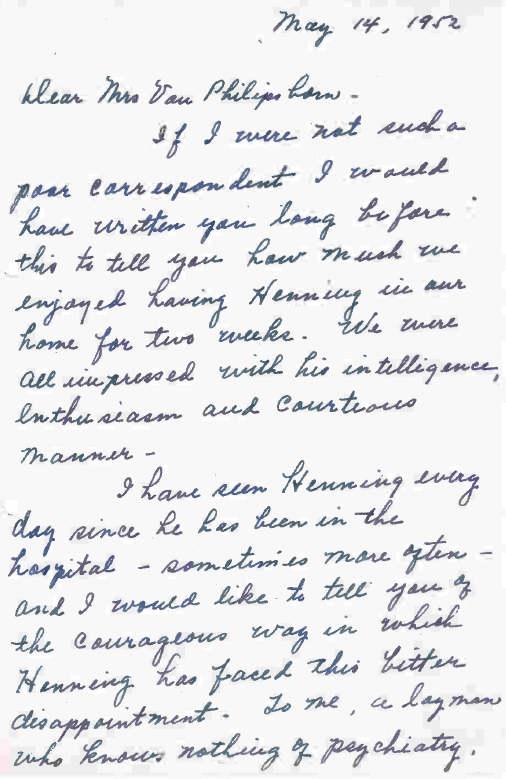 May 14, 1952
Dear Mrs Von Philipsborn -
If I were not such a
poor correspondent I would
have written you long before
this to tell you how much we
enjoyed having Henning in our
home for two weeks. We were
all impressed with his intelligence,
enthusiasm and courteous
manner -
I have seen Henning every
day since he has been in the
hospital - sometimes more often -
and I would like to tell you of
the courageous way in which
Henning has faced this bitter
disappointment. To me, a layman
who knows nothing of psychiatry.